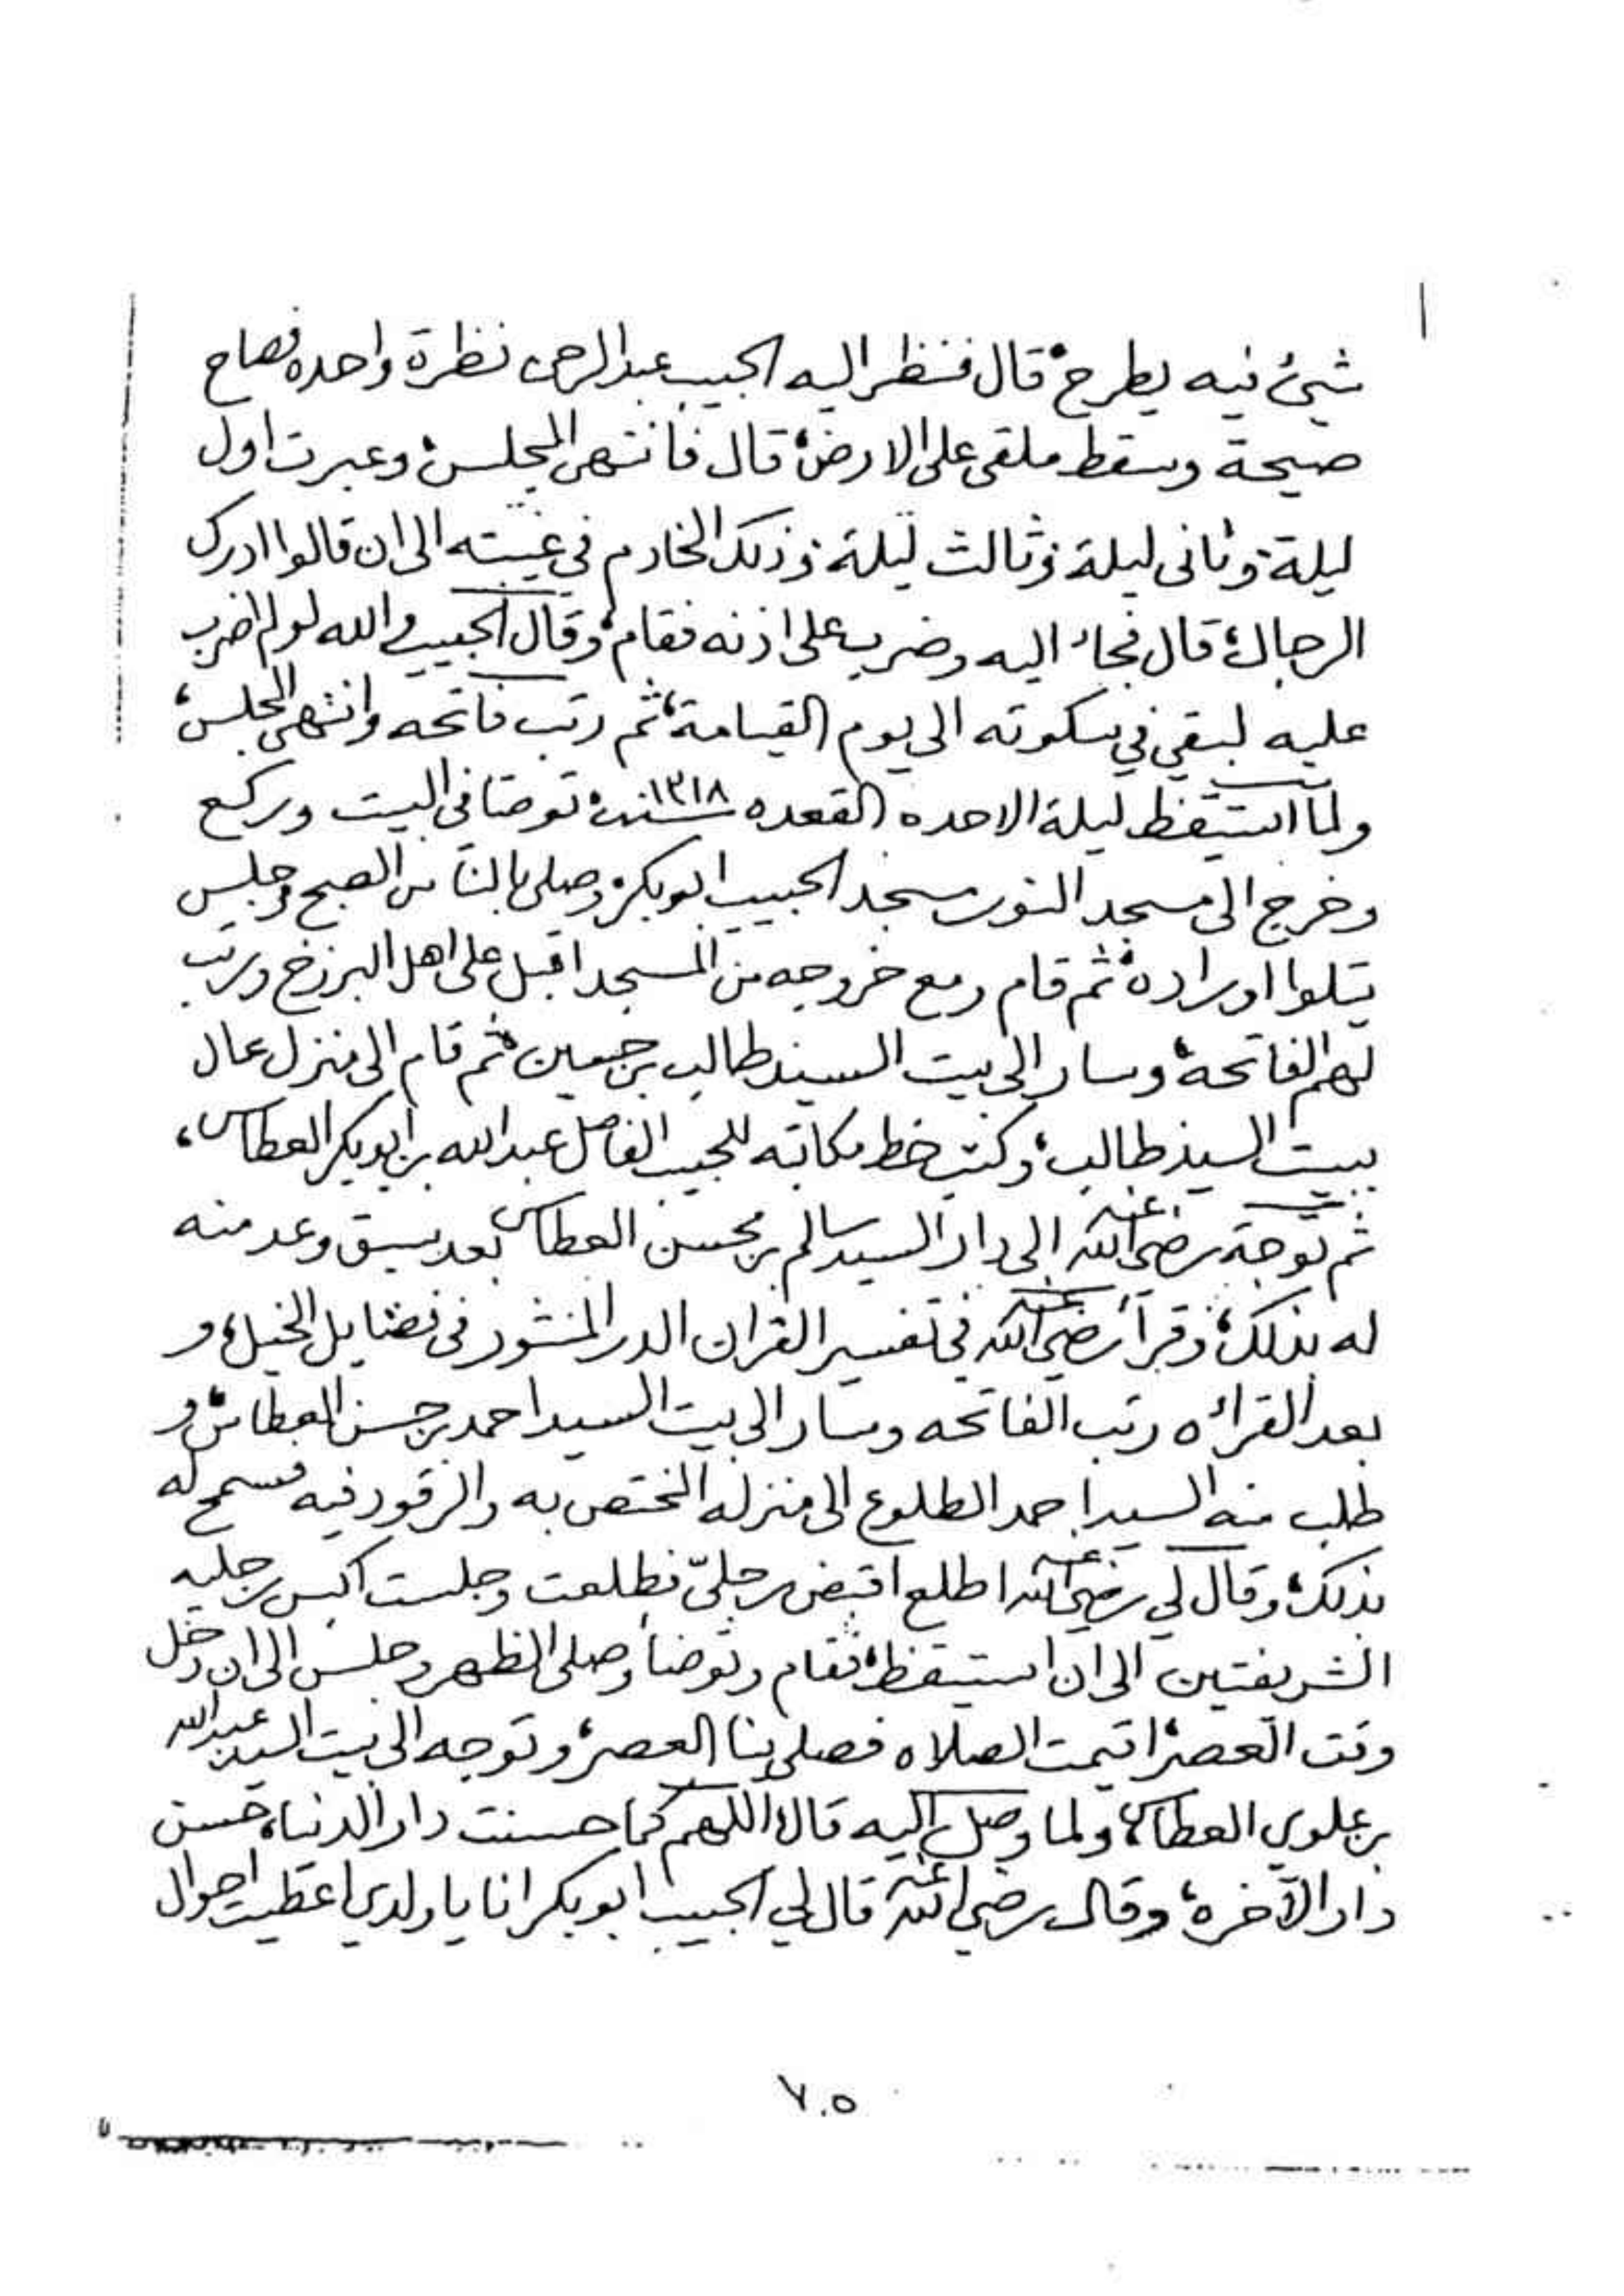 شيئ فيه يطرح، قال فنظر اليه الحبيب عبدالرحمن نظرة واحده فصاح
صيحة وسقط ملقى على الارض، قال فانتهى المجلس، وعبرت اول
ليلة، وثانى ليلة، وثالث ليلة، وذلك الخادم في غيبته الى ان قالوا ادرك
الرجال، قال فجاء اليه وضرب على اذنه فقام، وقال الحبيب والله لولم اضرب
عليه لبقي في سكوته الى يوم القيامة، ثم رتب فاتحه وانتهى المجلس،
ولما استيقظ ليلة الاحد ٥ القعده سنة ١٣١٨، توضا في البيت وركع
وخرج الى مسجد النور مسجد الحبيب ابوبكر، وصلى بالناس الصبح، وجلس
يتلوا اوراده، ثم قام ومع خروجه من المسجد اقبل على اهل البرزخ ورتب
لهم الفاتحة، وسار الى بيت السيد طالب بن حسين، ثم قام الى منزل عال
ببيت السيد طالب، وكتب خط مكاتبه للحبيب الفاضل عبدالله بن ابوبكر العطاس،
ثم توجه رضي الله عنه الى دار السيد سالم بن محسن العطاس بعد سبق وعد منه
له بذلك، وقرأ رضي الله عنه في تفسير القران الدر المنثور في فضايل الخيل، و
بعد القرائه رتب الفاتحه وسار الى بيت السيد احمد بن حسن العطاس، و
طلب منه السيد احمد الطلوع الى منزله المختص به والرقود فيه فسمح له
بذلك، وقال لي رضي الله عنه اطلع اقبض رجليّ فطلعت وجلست اكبس رجليه
الشريفتين الى ان استيقظ، فقام وتوضأ وصلى الظهر وجلس الى ان دخل
وقت العصر، اقيمت الصلاه فصلى بنا العصر، وتوجه الى بيت السيد عبدالله
بن علوي العطاس، ولما وصل اليه قال، اللهم كما حسنت دار الدنيا، حسن
دار الآخره، وقال رضي الله عنه قال لي الحبيب ابوبكر انا يا ولدي اعطيت احوال